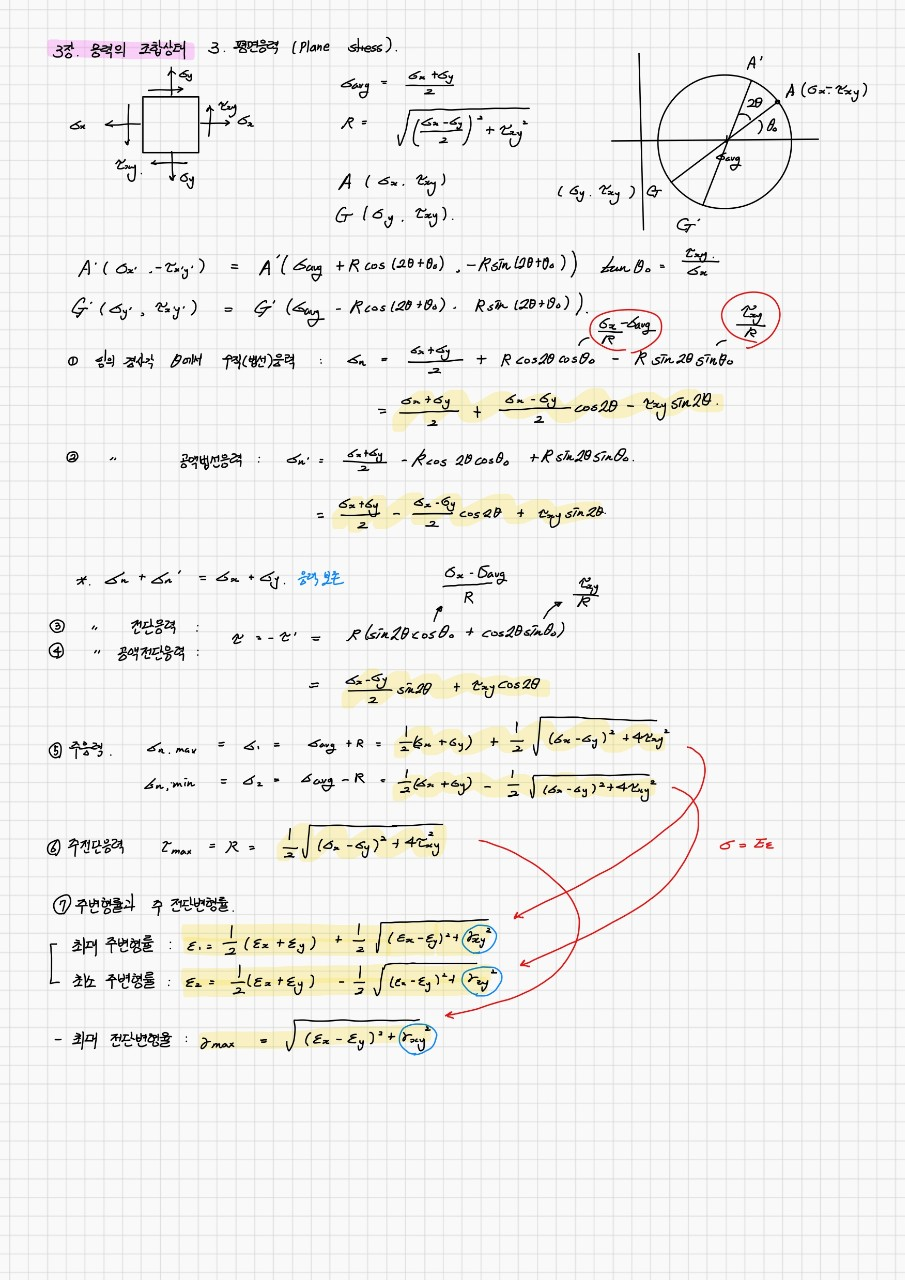 3장. 응력의 조합상태 3. 평면응력 (Plane stress).
σy
τxy
σx
σx
τxy.
σy
σavg = (σx+σy)/2
R = √(((σx-σy)/2)² + τxy²)
A (σx. τxy)
G (σy, τxy).
A'
A (σx - τxy)
2θ
θ₀
σavg
(σy. τxy) G
G'
A'(σx', -τx'y') = A'(σavg + R cos (2θ+θ₀), -R sin (2θ+θ₀)) tan θ₀ = τxy./σx
G'(σy', τx'y') = G'(σavg - R cos (2θ+θ₀). R sin (2θ+θ₀)).
(σx-σavg)/R τxy/R
① 임의 경사각 θ에서 수직(법선)응력 : σn = (σx+σy)/2 + R cos2θ cosθ₀ - R sin2θ sinθ₀
= (σx+σy)/2 + (σx-σy)/2 cos2θ - τxy sin2θ.
② " 공액법선응력 : σn' = (σx+σy)/2 - R cos 2θ cosθ₀ + R sin2θ sinθ₀.
= (σx+σy)/2 - (σx-σy)/2 cos2θ + τxy sin2θ.
*. σn + σn' = σx + σy. 응력 보존
(σx - σavg)/R τxy/R
③ " 전단응력 :
④ " 공액전단응력 :
τ = -τ' = R(sin2θ cosθ₀ + cos2θ sinθ₀)
= (σx-σy)/2 sin2θ + τxy cos2θ
⑤ 주응력. σn.max = σ₁ = σavg + R = 1/2(σx + σy) + 1/2 √((σx-σy)² + 4τxy²)
σn.min = σ₂ = σavg - R = 1/2(σx + σy) - 1/2 √((σx-σy)² + 4τxy²)
⑥ 주전단응력 τmax = R = 1/2 √((σx - σy)² + 4τxy²)
σ = Eε
⑦ 주변형률과 주 전단변형률.
최대 주변형률 : ε₁ = 1/2 (εx + εy) + 1/2 √((εx-εy)² + γxy²)
최소 주변형률 : ε₂ = 1/2 (εx + εy) - 1/2 √((εx-εy)² + γxy²)
- 최대 전단변형률 : γmax = √((εx - εy)² + γxy²)